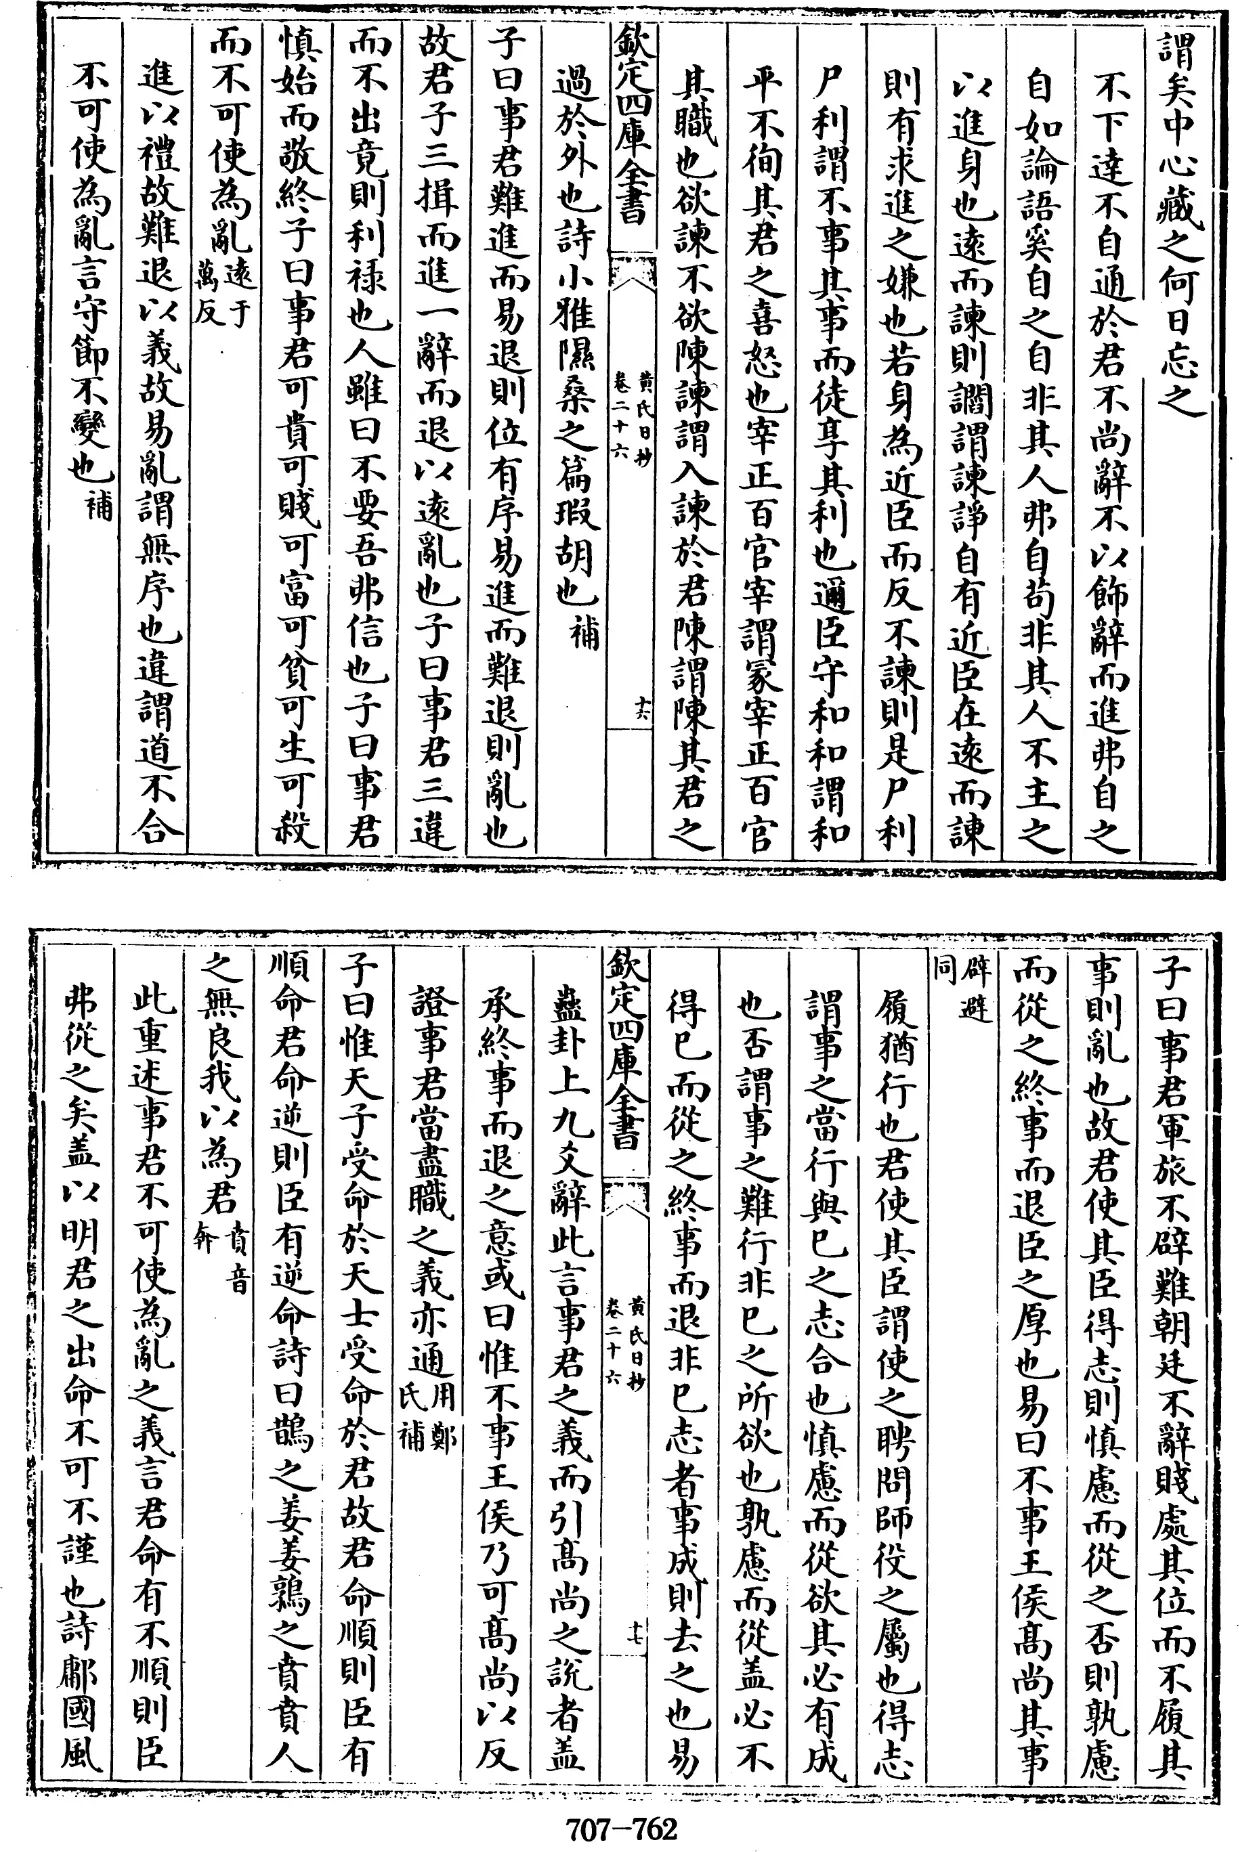 謂矣中心藏之何日忘之
不下達不自通於君不尚辭不以飾辭而進弗自之
自如論語奚自之自非其人弗自茍非其人不主之
以進身也遠而諫則讇謂諫諍自有近臣在遠而諫
則有求進之嫌也若身為近臣而反不諫則是尸利
尸利謂不事其事而徒享其利也邇臣守和和謂和
平不徇其君之喜怒也宰正百官宰謂冡宰正百官
其職也欲諫不欲陳諫謂入諫於君陳謂陳其君之
欽定四庫全書
黄氏日抄
卷二十六
十六
過於外也詩小雅隰桑之篇瑕胡也補
子曰事君難進而易退則位有序易進而難退則亂也
故君子三揖而進一辭而退以遠亂也子曰事君三違
而不出竟則利禄也人雖曰不要吾弗信也子曰事君
慎始而敬終子曰事君可貴可賤可富可貧可生可殺
而不可使為亂遠于萬反
進以禮故難退以義故易亂謂無序也違謂道不合
不可使為亂言守節不變也補
子曰事君軍旅不辟難朝廷不辭賤處其位而不履其
事則亂也故君使其臣得志則慎慮而從之否則孰慮
而從之終事而退臣之厚也易曰不事王侯髙尚其事
辟避同
履猶行也君使其臣謂使之聘問師役之屬也得志
謂事之當行與已之志合也慎慮而從欲其必有成
也否謂事之難行非已之所欲也孰慮而從盖必不
得已而從之終事而退非已志者事成則去之也易
欽定四庫全書
黄氏日抄
卷二十六
十七
蠱卦上九爻辭此言事君之義而引髙尚之說者盖
承終事而退之意或曰惟不事王侯乃可髙尚以反
證事君當盡職之義亦通用鄭氏補
子曰惟天子受命於天士受命於君故君命順則臣有
順命君命逆則臣有逆命詩曰鵲之姜姜鶉之賁賁人
之無良我以為君賁音奔
此重述事君不可使為亂之義言君命有不順則臣
弗從之矣盖以明君之出命不可不謹也詩鄘國風
707-762